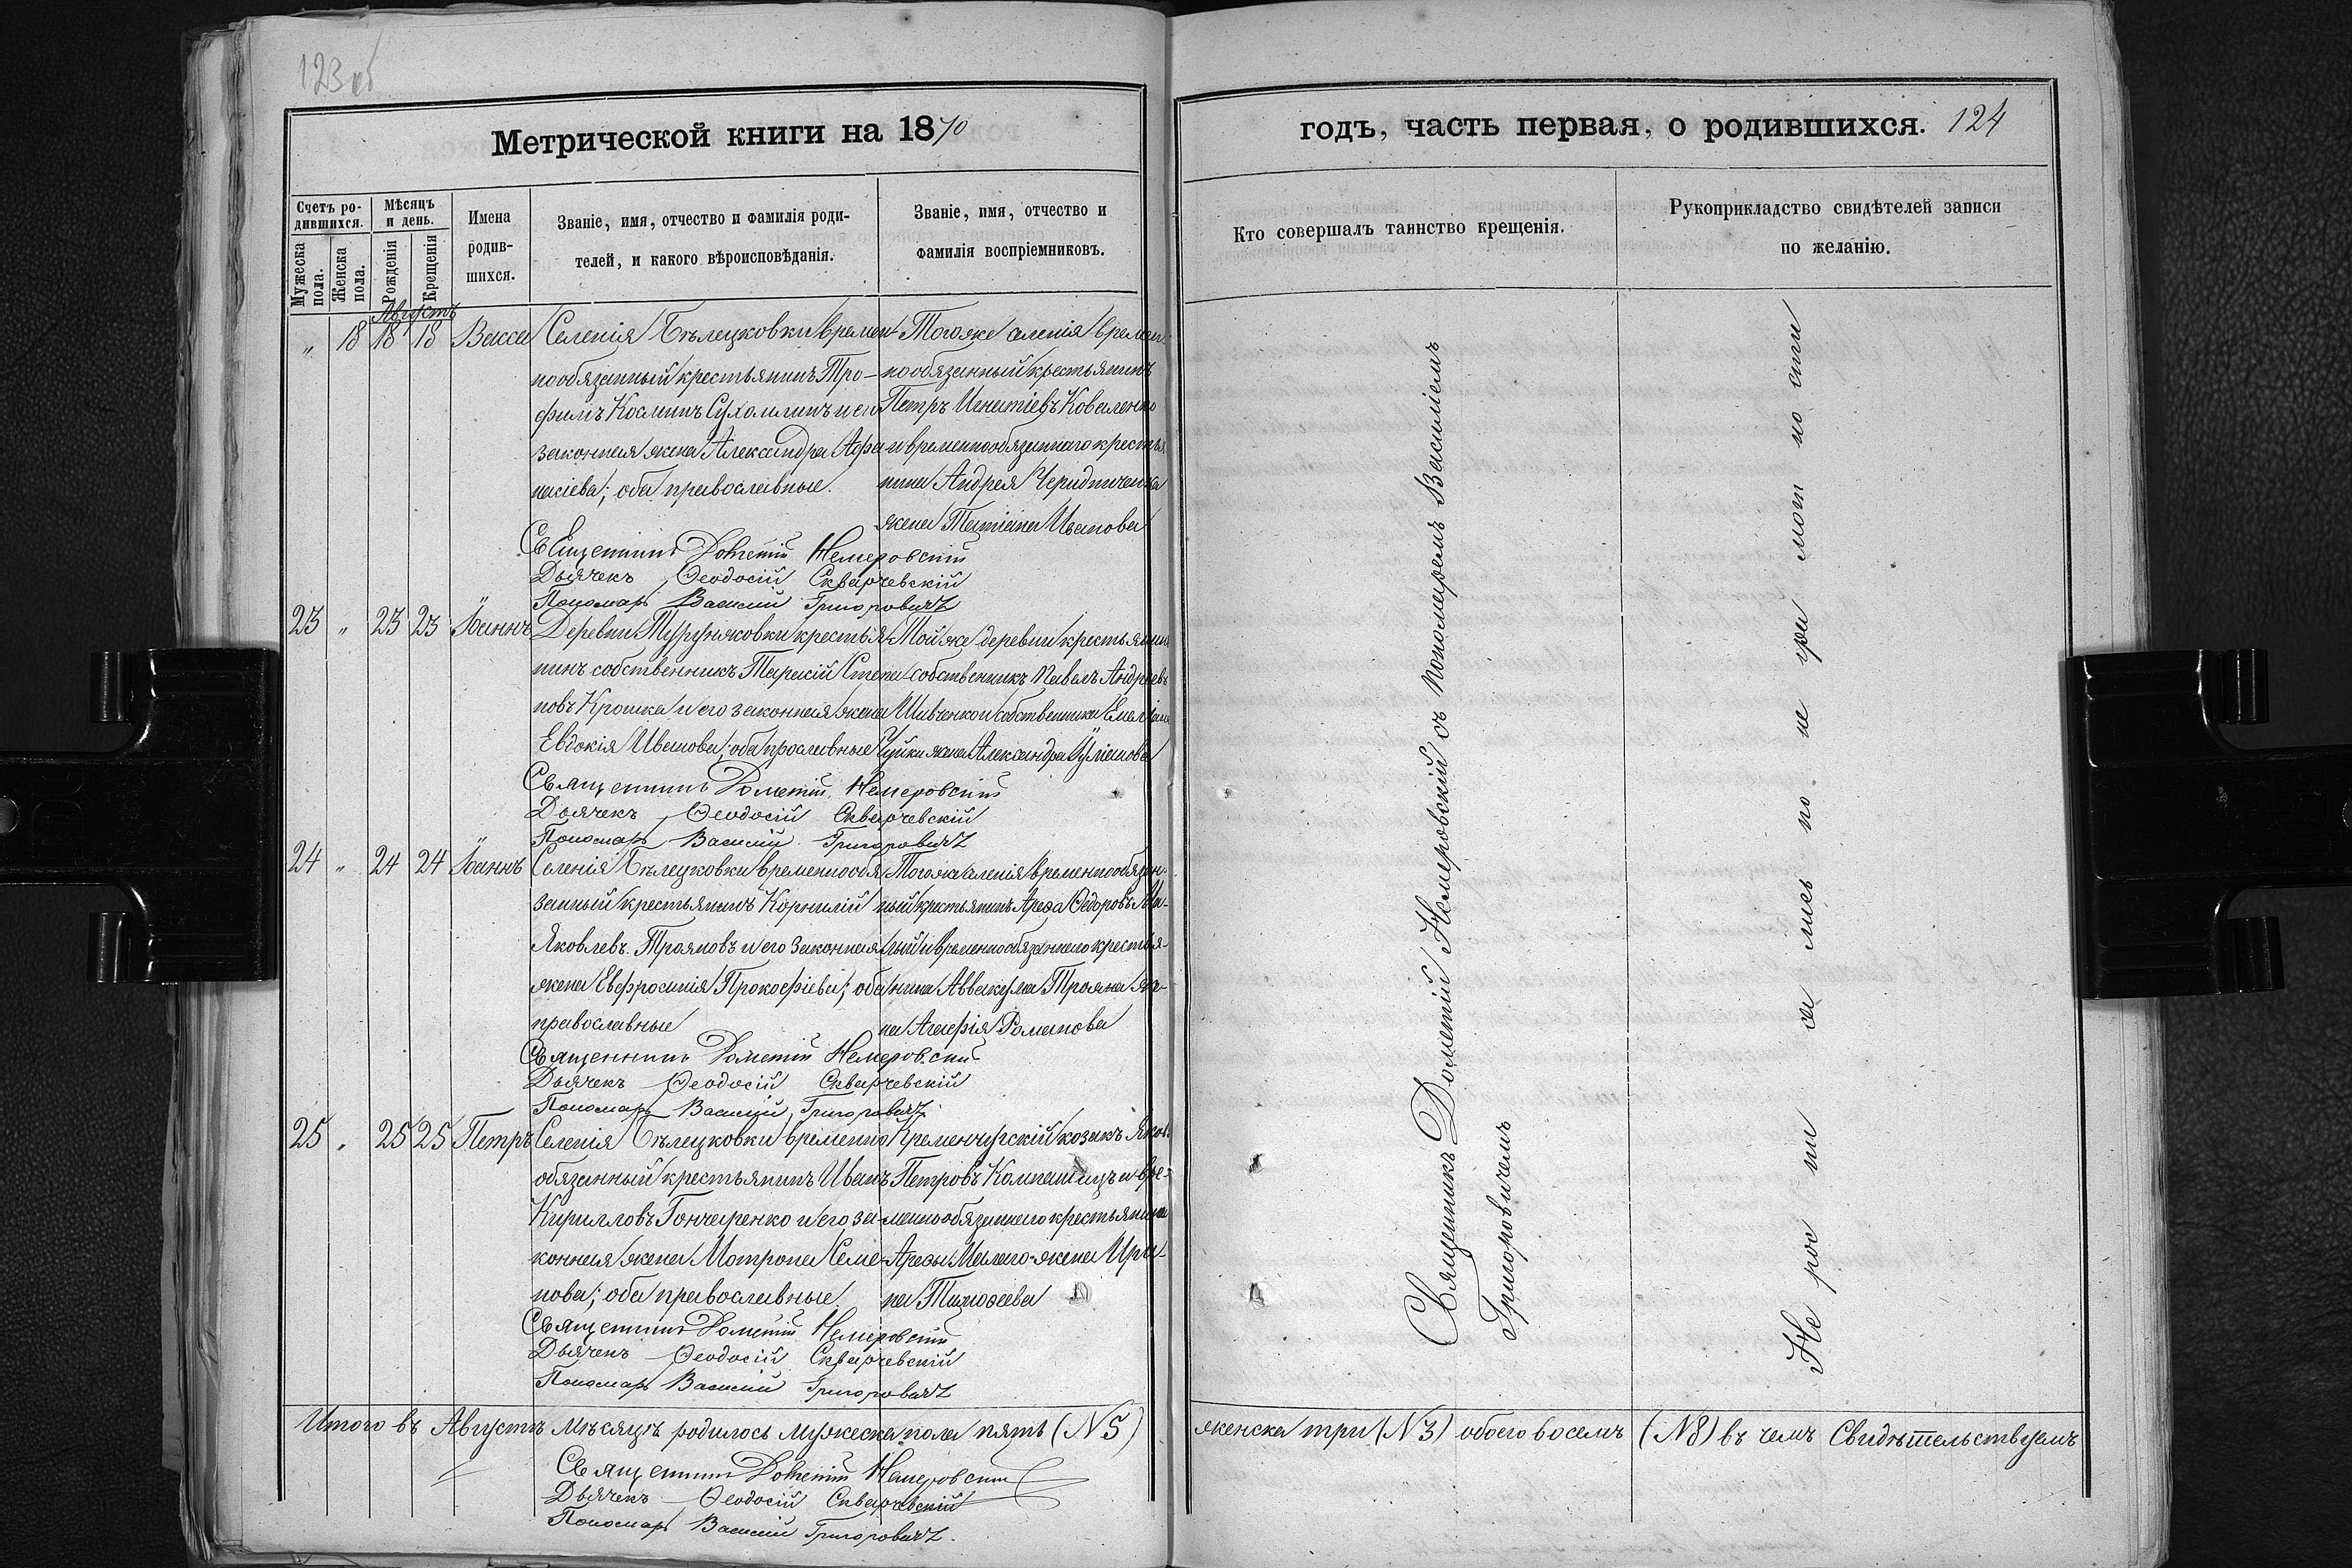 123 об
Метрической книги на 1870
годъ, часть первая, о родившихся. 124
Счетъ ро-
дившихся.
Мужеска пола.
Женска пола.
Мѣсяцъ
и день.
Рожденія
Крещенія
Имена
родив-
шихся.
Званіе, имя, отчество и фамилія роди-
телей, и какого вѣроисповѣданія.
Званіе, имя, отчество и
фамилія воспріемниковъ.
Кто совершалъ таинство крещенія.
Рукоприкладство свидѣтелей записи
по желанію.
Августъ
" 18 18 18 Васса
Селенія Бѣлецковки времен-
нообязанный крестьянинъ Тро-
фимъ Косминъ Сухомлинъ и его
законная жена Александра Афа-
насіева; оба православные.
Тогоже селенія времен-
нообязанный крестьянинъ
Петръ Игнатіевъ Коваленко
и временнообязаннаго крестья
нина Андрея Чередниченка
жена Татіана Иванова
Священникъ Дометій Немеровскій
Дьячекъ Ѳеодосій Скварчевскій
Пономарь Василій Григоровичъ
23 " 23 23 Іоаннъ
Деревни Муруняковки крестья-
нинъ собственникъ Тарасій Степа-
новъ Крошка и его законная жена
Евдокія Иванова; оба прославные
Тойже деревни крестьянин
собственникъ Павелъ Андреевъ
Шивченко и собственника Емеліана
Чуйки жена Александра Уліанова
Священникъ Дометій Немеровскій
Дьячекъ Ѳеодосій Скварчевскій
Пономарь Василій Григоровичъ
24 " 24 24 Іоаннъ
Селенія Бѣлецковки временнообя
занный крестьянинъ Корнилій
Яковлевъ Трояновъ и его законная
жена Евфросинія Прокофіева; оба
православные
Тогоже селенія временнообязан-
ный крстьянинъ Ареѳа Ѳедоровъ Ма-
лый и временнообязаннаго крестья-
нина Аввакума Трояна же-
на Агафія Романова
Священникъ Дометій Немеровскій
Дьячекъ Ѳеодосій Скварчевскій
Пономарь Василій Григоровичъ
25 " 25 25 Петръ
Селенія Бѣлецковки временно
обязанный крестьянинъ Иванъ
Кирилловъ Гончаренко и его за-
конная жена Матрона Семе-
нова; оба православные
Кременчугскій козакъ Яков
Петровъ Компаніецъ и вре-
меннообязаннаго крестьянина
Ареѳы Малаго жена Ири-
на Тимоѳеева
Священникъ Дометій Немеровскій
Дьячекъ Ѳеодосій Скварчевскій
Пономарь Василій Григоровичъ
Священникъ Дометій Немеровскій съ пономаремъ Василіемъ
Григоровичемъ
Не рос пи са лись по не гра мот но сти
Итого въ Августѣ мѣсяцѣ родилось мужеска пола пять (№ 5)
женска три (№ 3) обоего восемь (№ 8) въ чемъ Свидѣтельствуемъ
Священникъ Дометій Немеровскій
Дьячекъ Ѳеодосій Скварчевскій
Пономарь Василій Григоровичъ.